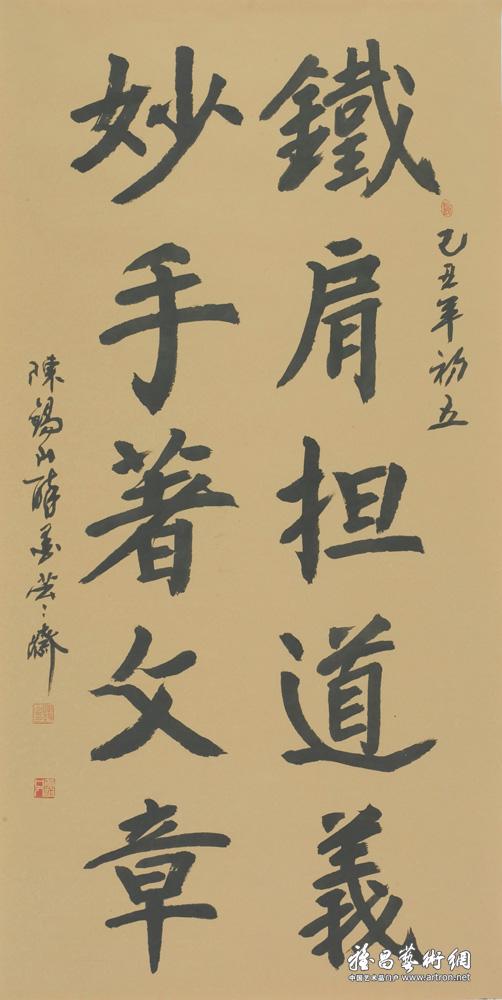 己丑年初五
鐵肩担道義
妙手著文章
陳錫山醉墨芸〻齋
雅昌藝術網
中国艺术品门户 www.artron.net